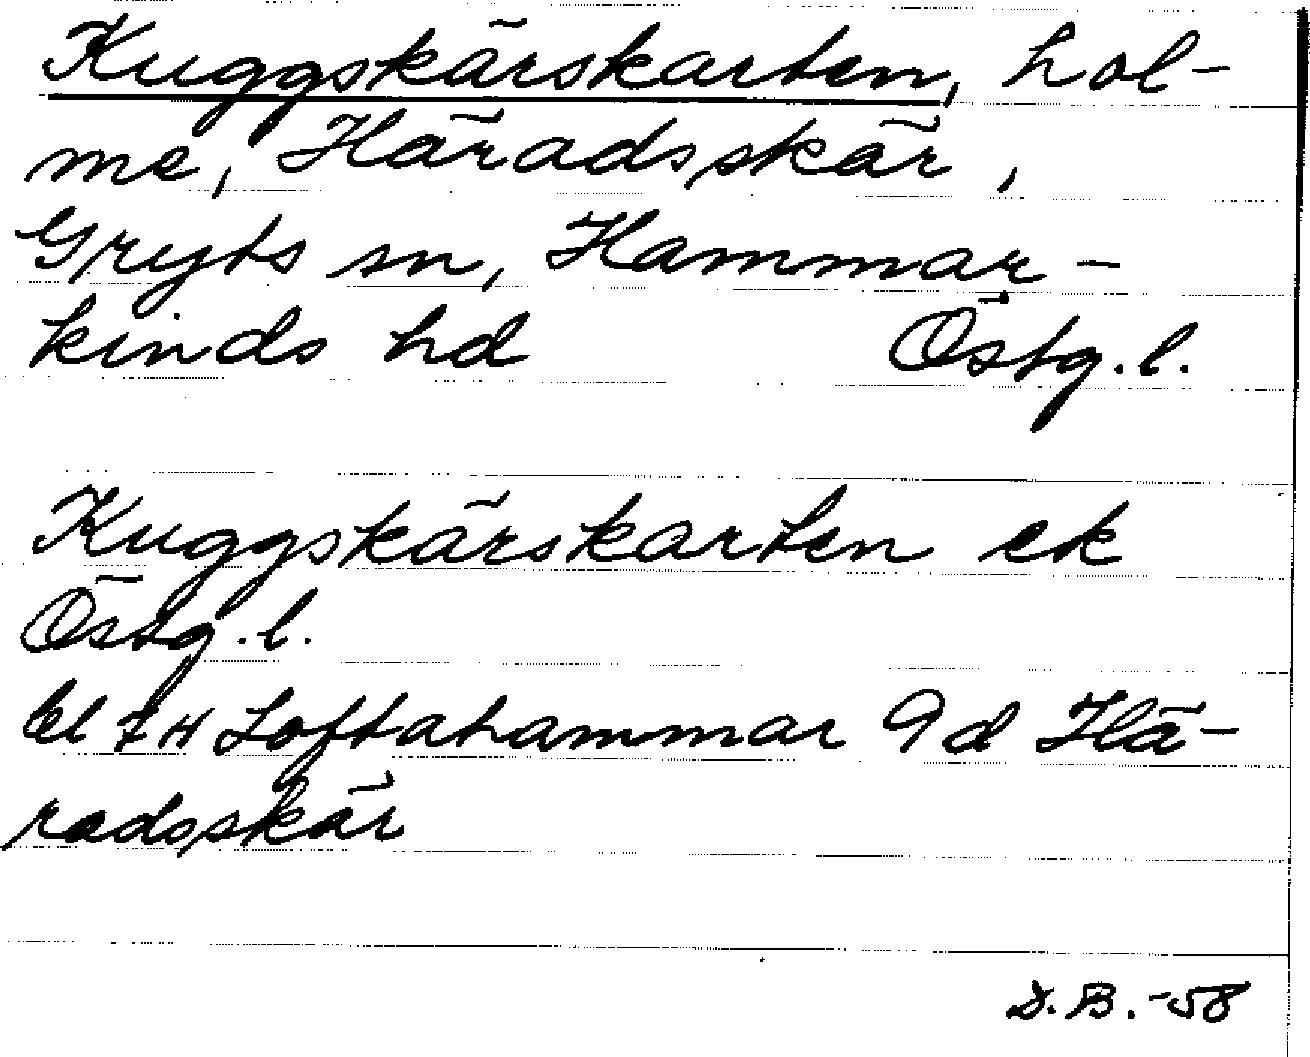 Kuggskärskarten, hol-
me, Häradsskär,
Gryts sn, Hammar-
kinds hd Östg.l.
Kuggskärskarten ek
Östg.l.
bl 7H Loftahammar 9d Hä-
radsskär
D.B.-58